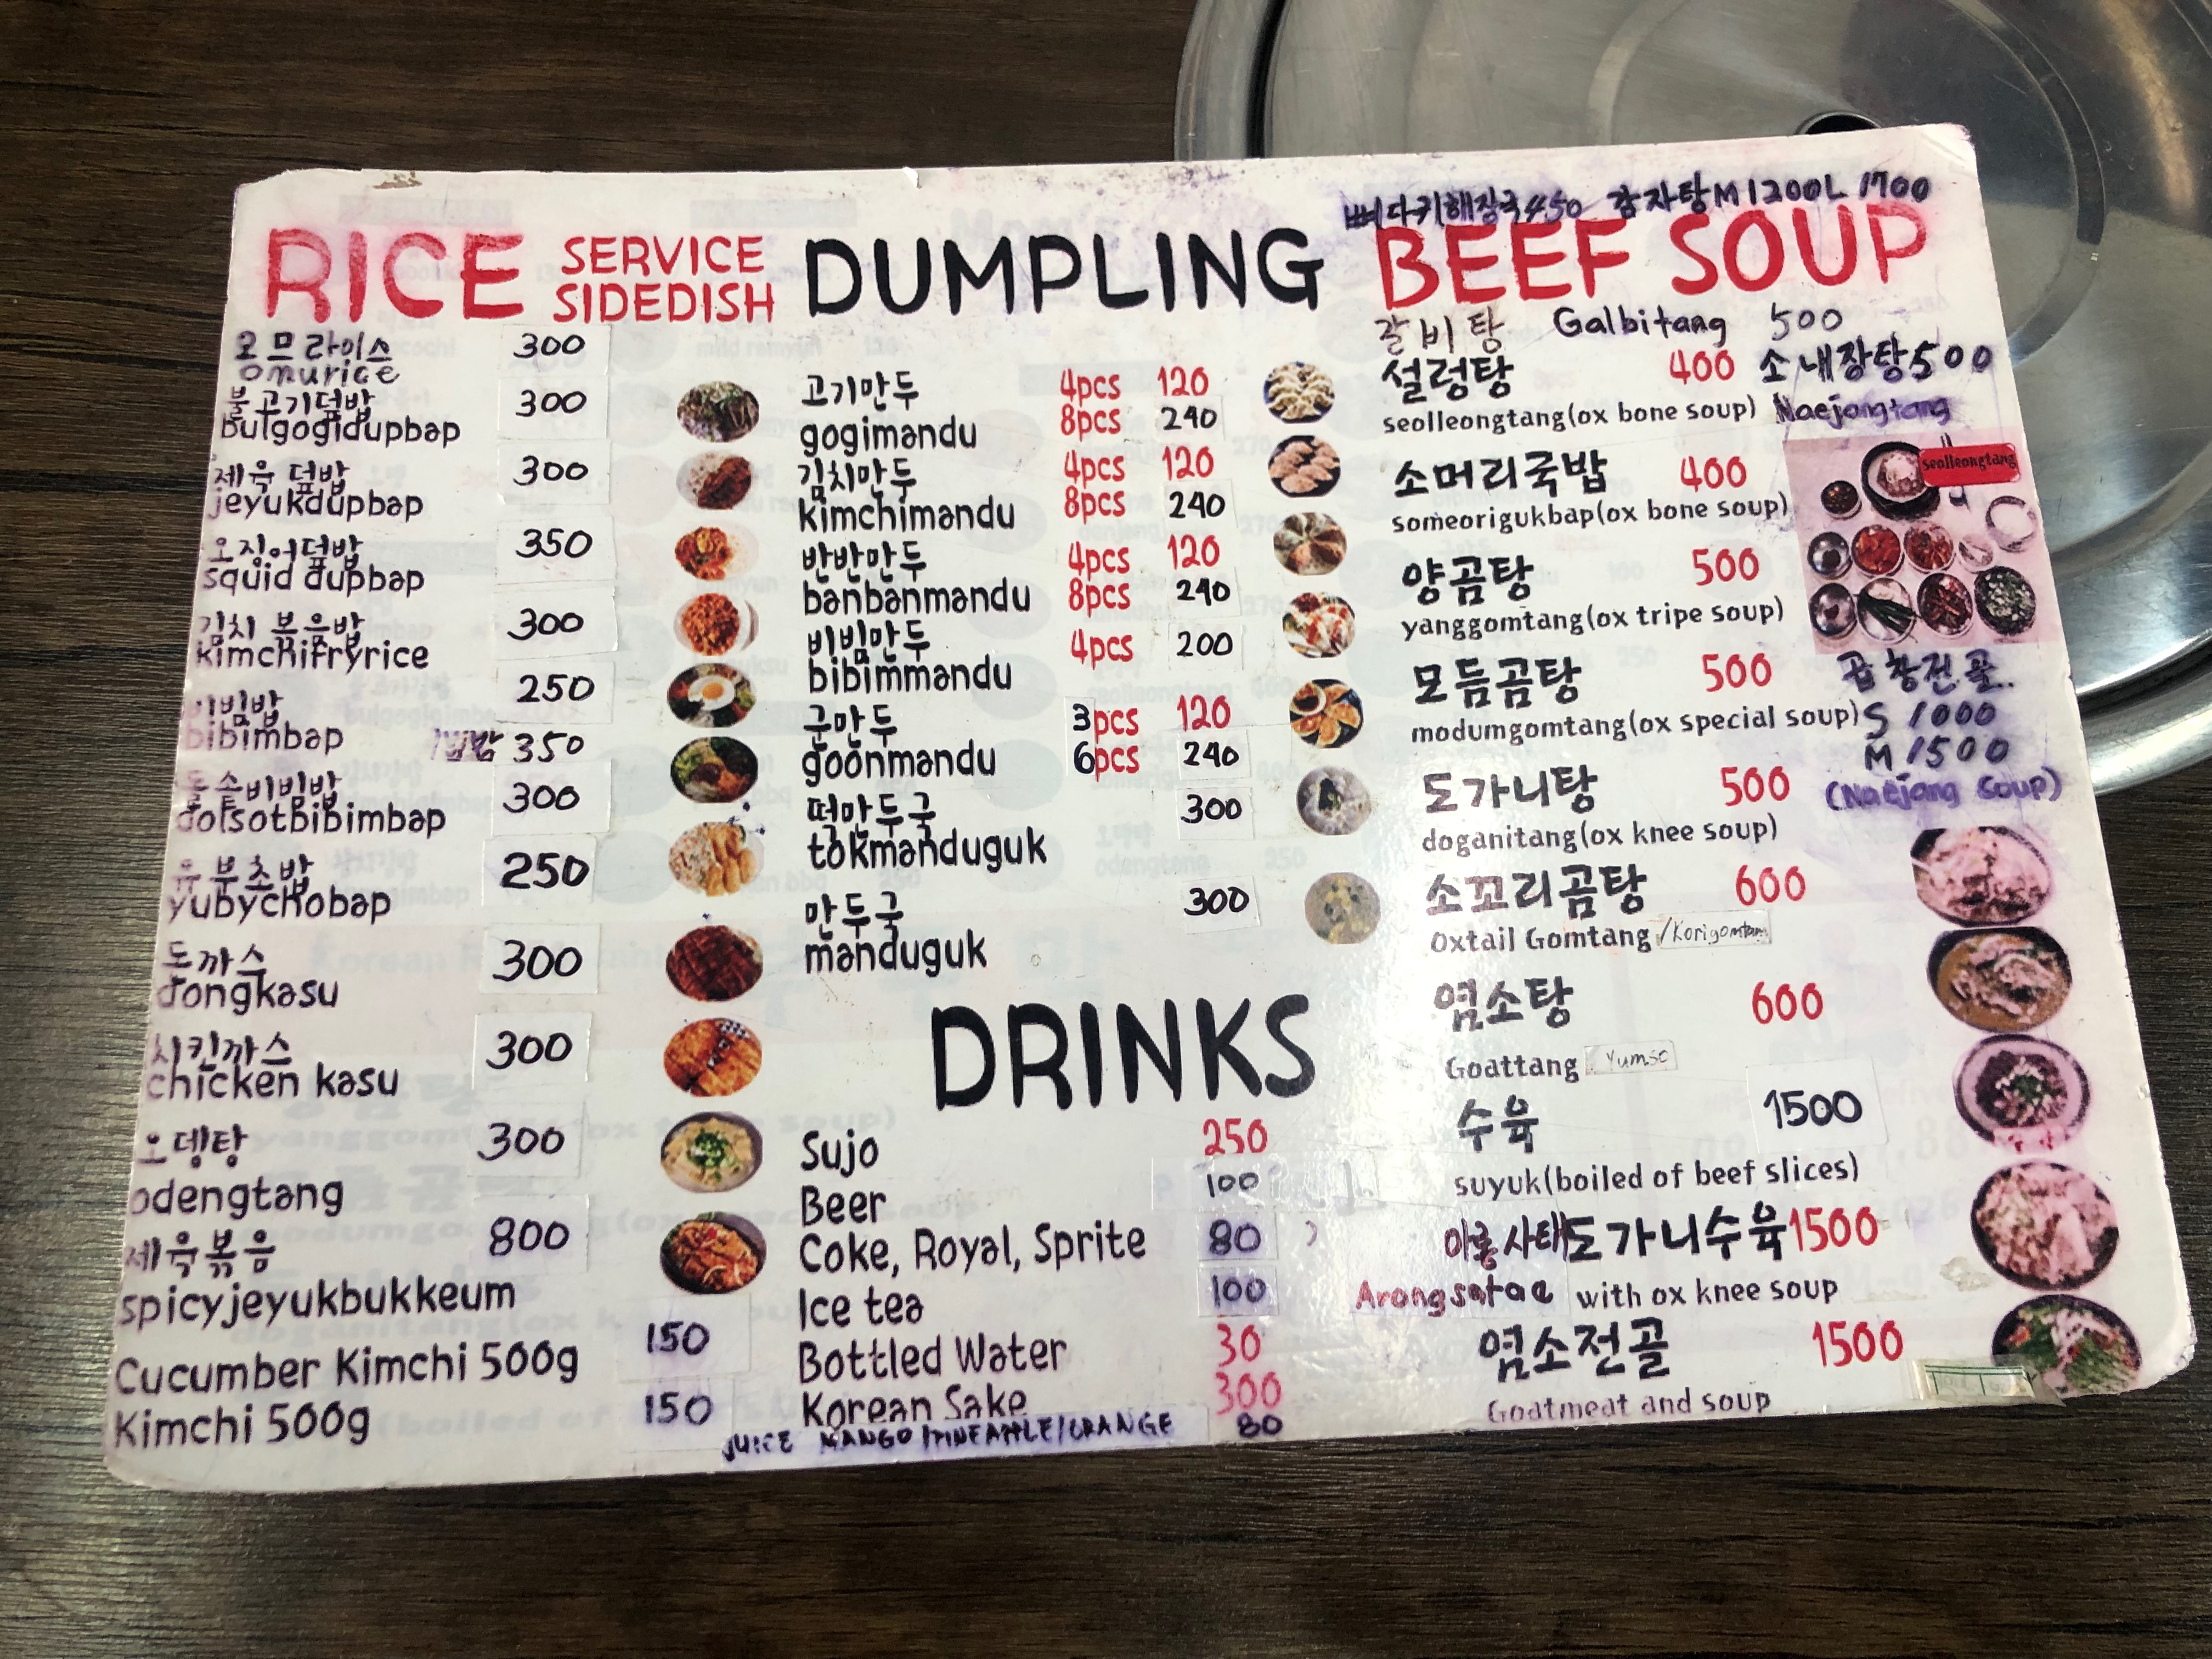 RICE SERVICE SIDEDISH
오므라이스 300
omurice
불고기덮밥 300
bulgogidupbap
제육 덮밥 300
jeyukdupbap
오징어덮밥 350
squid dupbap
김치 볶음밥 300
kimchifryrice
비빔밥 250
bibimbap 350
돌솥비빔밥 300
dolsotbibimbap
유부초밥 250
yubychobap
돈까스 300
dongkasu
치킨까스 300
chicken kasu
오뎅탕 300
odengtang
제육볶음 800
spicyjeyukbukkeum
Cucumber Kimchi 500g 150
Kimchi 500g 150
DUMPLING
고기만두 4pcs 120
gogimandu 8pcs 240
김치만두 4pcs 120
kimchimandu 8pcs 240
반반만두 4pcs 120
banbanmandu 8pcs 240
비빔만두 4pcs 200
bibimmandu
군만두 3pcs 120
goonmandu 6pcs 240
떡만두국 300
tokmanduguk
만두국 300
manduguk
DRINKS
Sujo 250
Beer 100
Coke, Royal, Sprite 80
Ice tea 100
Bottled Water 30
Korean Sake 300
JUICE MANGO/PINEAPPLE/ORANGE 80
뼈다귀해장국 450 감자탕 M 1200 L 1700
BEEF SOUP
갈비탕 Galbitang 500
설렁탕 400
seolleongtang(ox bone soup)
소내장탕 500
Naejangtang
소머리국밥 400
someorigukbap(ox bone soup)
seolleongtang
양곰탕 500
yanggomtang(ox tripe soup)
모듬곰탕 500
modumgomtang(ox special soup)
곱창전골.
S 1000
M 1500
(Naejang Soup)
도가니탕 500
doganitang(ox knee soup)
소꼬리곰탕 600
Oxtail Gomtang /Korigomtam
염소탕 600
Goattang Yumso
수육 1500
suyuk(boiled of beef slices)
아롱사태도가니수육 1500
Arongsatae with ox knee soup
염소전골 1500
Goatmeat and soup